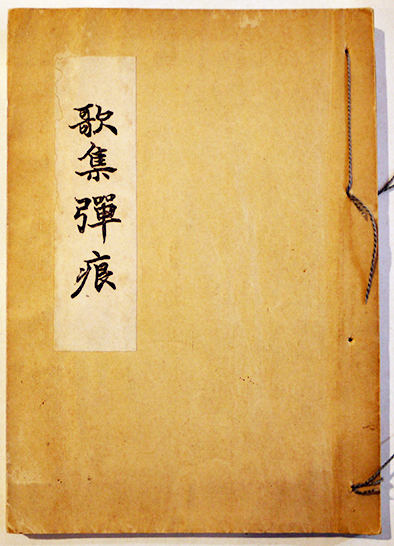 歌集彈痕